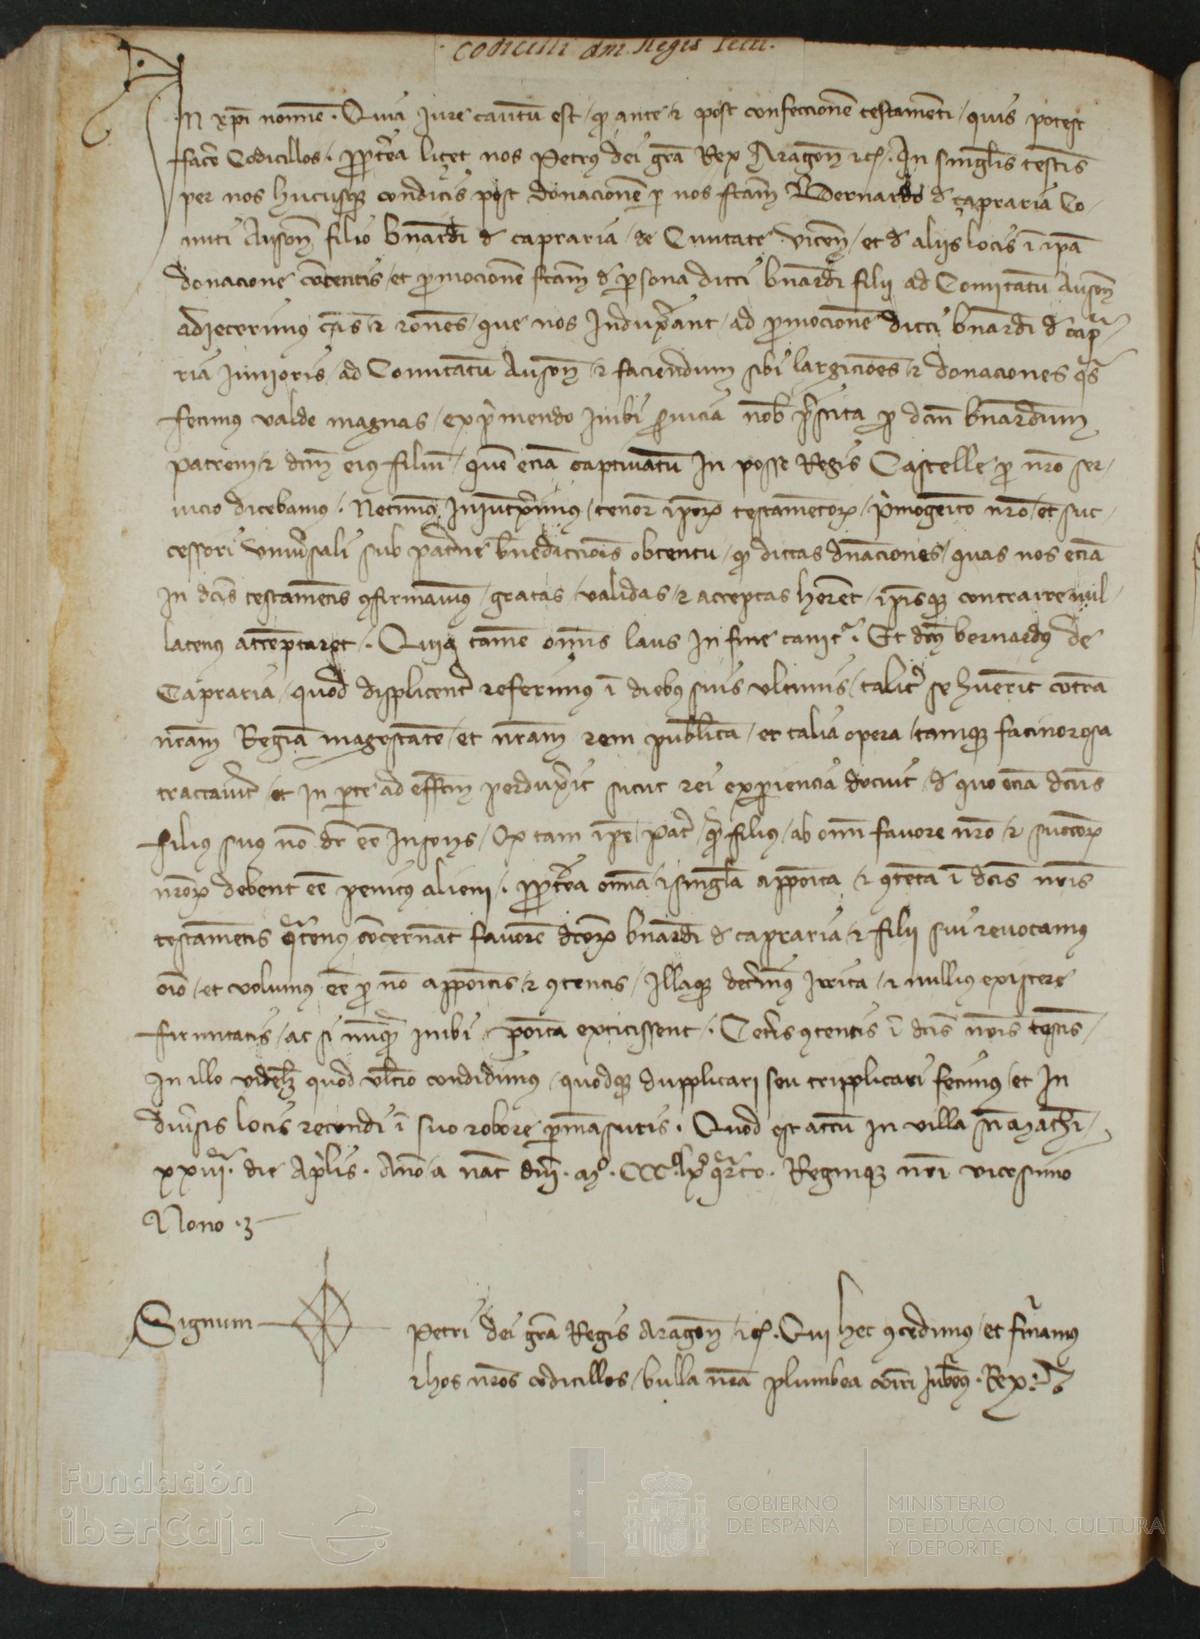 Codicilli dni Regis
In xpi nomine. Quia iure cautum est, qd ante & post confeccionē testamenti, quis potest
ffacē Codicillos. Proptea licet nos Petrus dei gra Rex Aragon etc. In singulis testis
per nos hucusqz condictis post donacionē p nos fcam Bernardo d capraria Co-
miti Auson filio bnardi d capraria, de Civitate vicen, et d aliis locis ī ipā
donacione cōtentis, et pmocionē fcam d psona dicti bnardi filii ad Comitatū Auson
adiecerimus cās & rones, que nos Induxerant, ad pmocionē dicti bnardi d capra-
ria iunioris, ad Comitatū Auson & faciendum sibi largiciōes & donaciones qs
fecimus valde magnas, expmendo inibi suicia nob pstita p dcm bnardum
patrem & dcm eius filiū, quē eciā captivatū In posse Regis Castelle, p nro ser-
uicio dicebamus. Necnon Iniunximus, tenor ipor testamentor, pmogenito nro, et suc-
cessori universali sub paterne bnedictiois obtentu, qd dictas dnaciones, quas nos eciā
In dcis testamentis gfirmavimus, gratas, validas, & acceptas heret, ipisqz contraire nul-
latenus attemptaret. Quia tamē omnis laus In fine canitr. Et dcus bernardus de
Capraria, quod displicenter referimus ī diebus suis ultimis, taliter se huerit contra
nram Regiā magestatē, et nram rem publicā, et talia opera, tamqz facinorosa
tractaverit, et In parte ad effcm perduxerit sicut rei experiencia docuit, d quo eciā dcus
filius suus nō dr eē Insons, Ex tam ipe pater, q filius, ab omi favore nro, & succor
nror debent eē penitus alieni. Proptea omnia & singula apposita, & gtenta ī dcis nris
testamentis qtenus concernāt favorē dcor bnardi d capraria, & filii sui revocamus
oīo, et volumus eē p nō appositis & gtentis, Illaqz decnimus Irrita, & nullius existere
firmitatis, ac si nunqz inibi posita extitissent. Ceteris gtentis ī dcis nris testis,
In illo videlz quod ultīo condidimus, quodqz dupplicari seu tripplicari fecimus, et In
diversis locis recondi ī suo robore pmansuris. Quod est actū In villa sn mathei,
xxviiiª die Aprilis. Año a nat dni. Mº. CCCº lxº quarto. Regnique nri vicesimo
Nono.
Signum Petri dei gra Regis Aragon, etc. Qui hec gcedimus, et firmamus
& hos nros codicillos, bulla nra plumbea cōiri iubemus. Rex P.
Fundación
iberCaja
GOBIERNO
DE ESPAÑA
MINISTERIO
DE EDUCACIÓN, CULTURA
Y DEPORTE